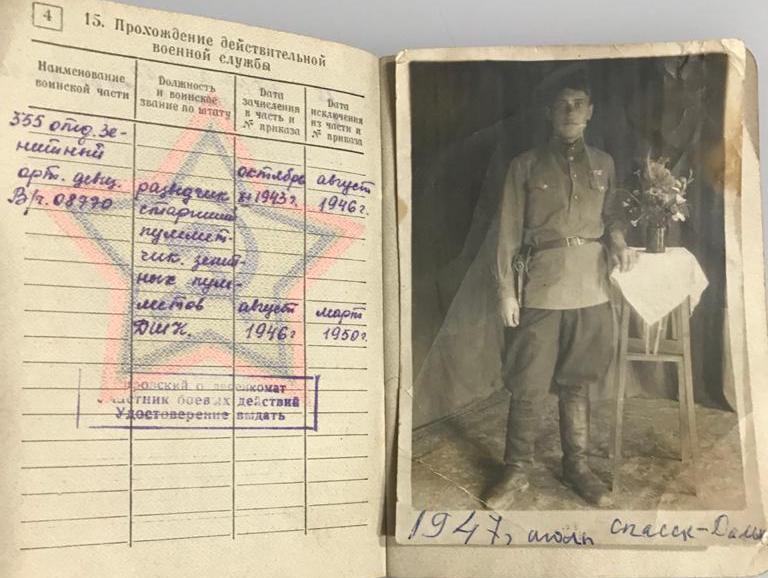 4
15. Прохождение действительной
военной службы
Наименование
воинской части
Должность
и воинское
звание по штату
Дата
зачисления
в часть и
№ приказа
Дата
исключения
из части и
№ приказа
355 отд. зе-
нитный
арт. див.
В/ч. 08770
разведчик
старший
пулемет-
чик. зенит-
ных пуле-
метов
ДШК.
октябрь
1943 г.
август
1946 г.
август
1946 г
март
1950 г.
военкомат
участник боевых действий
Удостоверение выдать
1947, июль Спасск-Даль